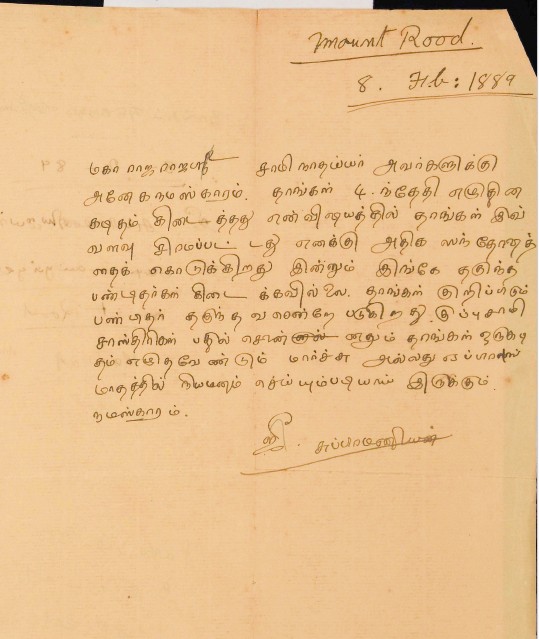 Mount Road.
8. Feb: 1889
மகா ராஜ ராஜஸ்ரீ சாமிநாதய்யர் அவர்களுக்கு
அனேக நமஸ்காரம். தாங்கள் 4.ந்தேதி எழுதின
கடிதம் கிடைத்தது என்விஷயத்தில் தாங்கள் இவ்
வளவு சிரமப்பட்டது எனக்கு அதிக ஸந்தோஷத்
தைக் கொடுக்கிறது இன்னும் இங்கே தகுந்த
பண்டிதர்கள் கிடைக்கவில்லை. தாங்கள் குறிப்பிடும்
பண்டிதர் தகுந்தவரென்றே படுகிறது. குப்புசாமி
சாஸ்திரிகள் பதில் சொன்னதும் தாங்கள் ஒருகடி
தம் எழுதவேண்டும் மார்ச்சு அல்லது ஏப்ரல்
மாதத்தில் நியமனம் செய்யும்படியாய் இருக்கும்.
நமஸ்காரம்.
ஜி. சுப்பிரமணியன்